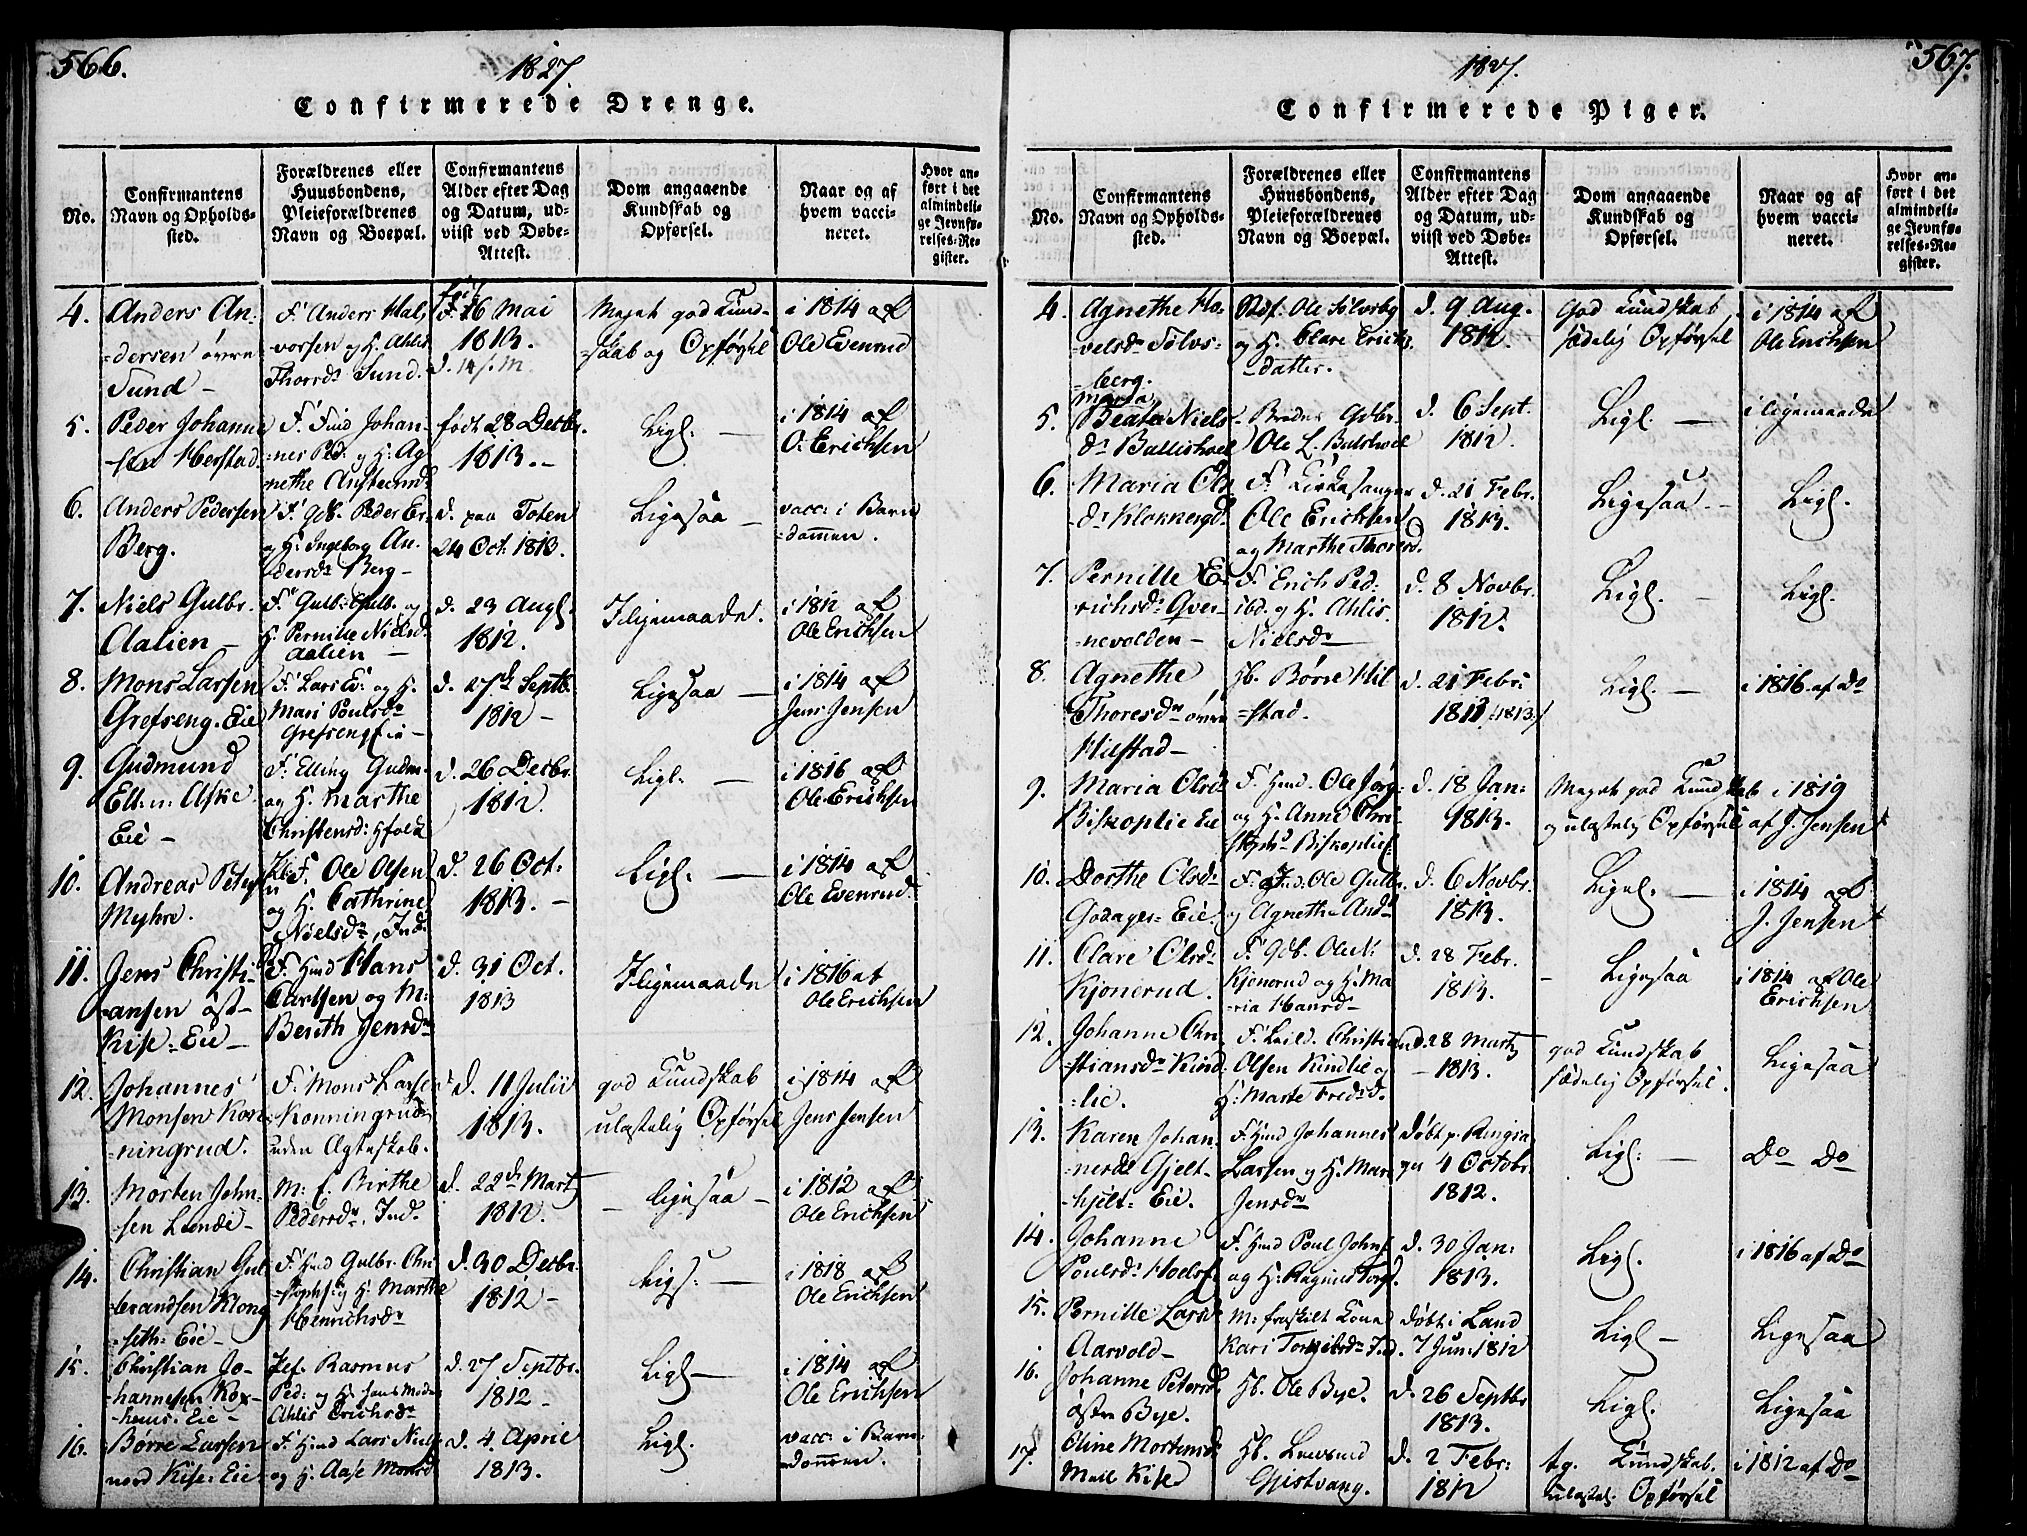 566.
1827.
Confirmerede Drenge.
No.
Confirmantens Navn og Opholds-sted.
Forældrenes eller Huusbondens, Pleieforældrenes Navn og Boepæl.
Confirmantens Alder efter Dag og Datum, ud-viist ved Døbe-Attest.
Dom angaaende Kundskab og Opførsel.
Naar og af hvem vacci-neret.
Hvor an-ført i det almindeli-ge Jevnfø-relses-Re-gister.
4. Anders An-
=dersen øvre
Sund –
F. Anders Hal,
vorsen og H. Ahlis
Thorsdr Sund.
26 Mai
1813.
Meget god Kund-
=skab og Opførsel
i 1814 af
Ole Evenrud
5. Peder Johanne
=sen Herstad
F. Ind Johan-
=nes Ped: og H: Ag-
nethe
født 28 Decbr.
1813. –
Ligl. —
i 1814 af
O: Erichsen
6. Anders Pedersen
Berg.
F. Gdb. Peder Er.
og H: Ingeborg An.
dersdr Berg –
d. paa Toten
24 Oct. 1813.
Ligesaa –
vacc: i Barn
=dommen.
7. Niels Gulbr.
Aalien –
F. Gulb: Gulb. og
H. Pernille Nielsd.
Aalien —
d. 23 Augs.
1812.
Iligemaade.
i 1812 af
Ole Erichsen
8. Mons Larsen
Grefseng. Eie
F. Lars Ev: og H.
Mari Poulsdr
Grefseng
d. 27de Septb.
1812 –
Ligesaa —
i 1814 af
Jens Jensen
9. Gudmund
Ell: n: Aske
Eie –
F. Elling Gudm.
og H. Marthe
Christensd:
d. 26 Decbr.
1812.
Ligl. —
i 1816 af
Ole Erichsen
10. Andreas Peters
Myhre.
F. Ole Olsen
og H. Cathrine
Nielsdr, Ind.
d. 26 Oct:
1813. –
Ligl. —
i 1814 af
Ole Evenrud.
11. Jens Christi-
=ansen øst-
Kise=Eie –
F. Hmd Hans
Carlsen og M:
Berith Jensdr
d. 31 Oct.
1813
Iligemaade
i 1816 af
Ole Erichsen
12. Johannes
Monsen Kon
=ningrud.
F. Mons Larse
Konningrud
uden Ægteskab.
d. 11 Julii
1813.
god Kundskab
ulastelig Opførsel
i 1814 af
Jens Jensen
13. Morten John-
sen Lunde –
M: f. Birthe
Pedersdr. Ind.
d. 22d Marty
1812.
– ligesaa –
i 1812 af
Ole Erichsen
14. Christian Gul
brandsen Klong
=seth=Eie –
F. Hmd Gulbr. Chri
=stophs: og H. Marthe
Henrichsdr
d. 30 Decbr.
1812 –
Ligs: —
i 1818 af
Ole Erichsen
15. Christian Jo-
hannesen
Eie –
Rasmus
Ped: og H.
Ahlis Erichsdr
d. 27 Septbr.
1812 –
Ligl —
i 1814 af
Ole Erichsen
16. Børre Larsen
nord Kise: Eie
F. Hmd Lars Niels
og H. Aase Monsd
d. 4. April
1813.
Ligl.
vacc: i Barn-
=dommen.
567.
1827.
Confirmerede Piger.
No.
Confirmantens Navn og Opholds-sted.
Forældrenes eller Huusbondens, Pleieforældrenes Navn og Boepæl.
Confirmantens Alder efter Dag og Datum, ud-viist ved Døbe-Attest.
Dom angaaende Kundskab og Opførsel.
Naar og af hvem vacci-neret.
Hvor an-ført i det almindeli-ge Jevnfø-relses-Re-gister.
4. Agnethe Ho-
velsdr Solvs-
=berg.
Ole Solvsbg
og H. Clare Erichs
–datter.
d. 9 Aug.
1812.
God Kundskab
sædelig Opførsel
i 1814 af
Ole Erichsen
5. Beata Niels
dr Ballishoel
Broder Gdbr.
Ole L. Balshoel
d. 6 Sept.
1812.
Ligl. —
i ligemaade
6. Maria Ols
dr Klokkergd
F. Kirkesanger
Ole Erichsen
og Marthe Thoresd.
d. 21 Febr.
1813.
Ligesaa –
Ligl.
7. Pernille E-
richsdr Qver-
=nevolden –
F. Erich Ped:
ibd. og H. Ahlis
Nielsdr
d. 8 Novbr.
1812.
Ligl. —
Ligl.
8. Agnethe
Thoresdr øvre
Hilstad –
Hb. Børre Hil
=stad.
d. 21 Febr:
1813 /1813/
Ligl. —
i 1816 af Do
9. Maria Olsd
Biskoplie Eie
F. Hmd. Ole Jørg:
og H. Anne Chri-
Biskoplie
d. 18 Jan:
1813.
Meget god Kundskab
og ulastelig Opførsel
i 1819
af J. Jensen
10. Dorthe Olsdr
Godager=Eie
F. Ind. Ole Gulbr.
og Agnethe Andr
d. 6 Novbr.
1813.
Ligel. —
i 1814 af
J. Jensen
11. Clare Olsdr
Kjonerud.
F. Gdb. Ole N:
Kjonerud og H. Ma
=ria Hansdr
d. 28 Febr.
1813.
– Ligesaa
i 1814 af Ole
Erichsen
12. Johanne Chri
stiansdr Kind
=lie.
F. Christi
Olsen Kindlie og
H: Marte Fredsd.
d. 28 Marty
– 1813.
god Kundskab
sædelig Opførsel.
Ligesaa
13. Karen Johan
nesdr Gjelt-
=hjelt=Eie.
F. Hmd Johannes
Larsen og H. Mari
Jensdr
Døbt p. Ringsa
ger 4 Octobr.
1812.
Ligl: —
Do Do
14. Johanne
Poulsdr Hoels
F. Hmd Poul Johns
og H: Ragnild Torgs
d. 30 Jan:
1813.
Ligl.
i 1816 af Do
15. Pernille Larsd
Aarvold –
M: fraskilt Kone
Kari Torgersdr Ind.
Døbt i Land
7 Jun: 1812
Ligl –
Ligesaa
16. Johanne Petersd.
østre Bye.
Hb. Ole Bye.
d. 26 Septbr
1813.
Ligl.
Ligesaa
17. Eline Mortensd
Mell Kise
Hb. Lavsind
Gjestvang.
d. 2 Febr:
1812
tg. Kundskab.
ulastel. Opførsel
i 1812 af Do